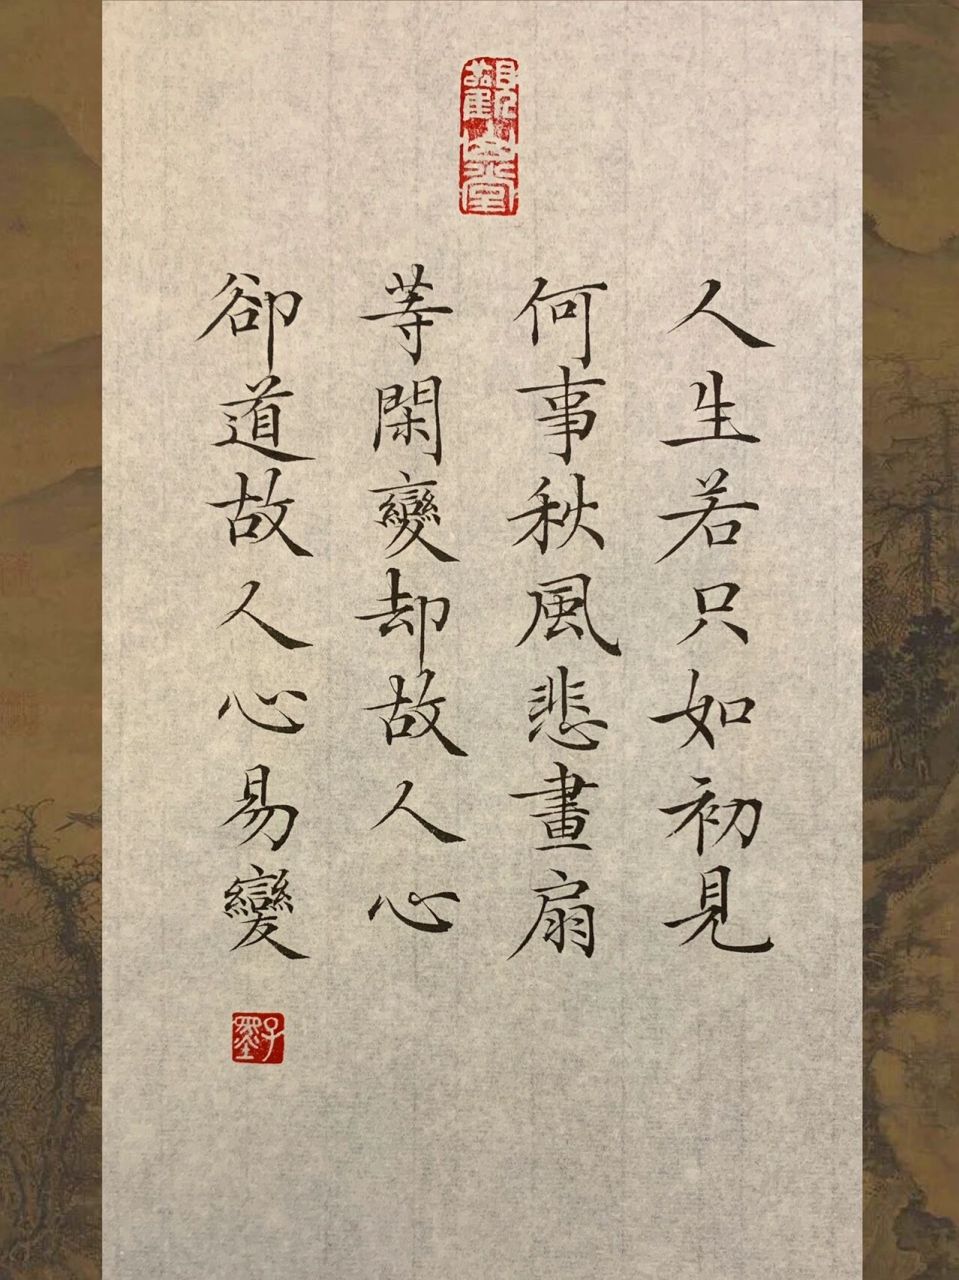 觀山堂
人生若只如初見
何事秋風悲畫扇
等閑變却故人心
卻道故人心易變
子墨